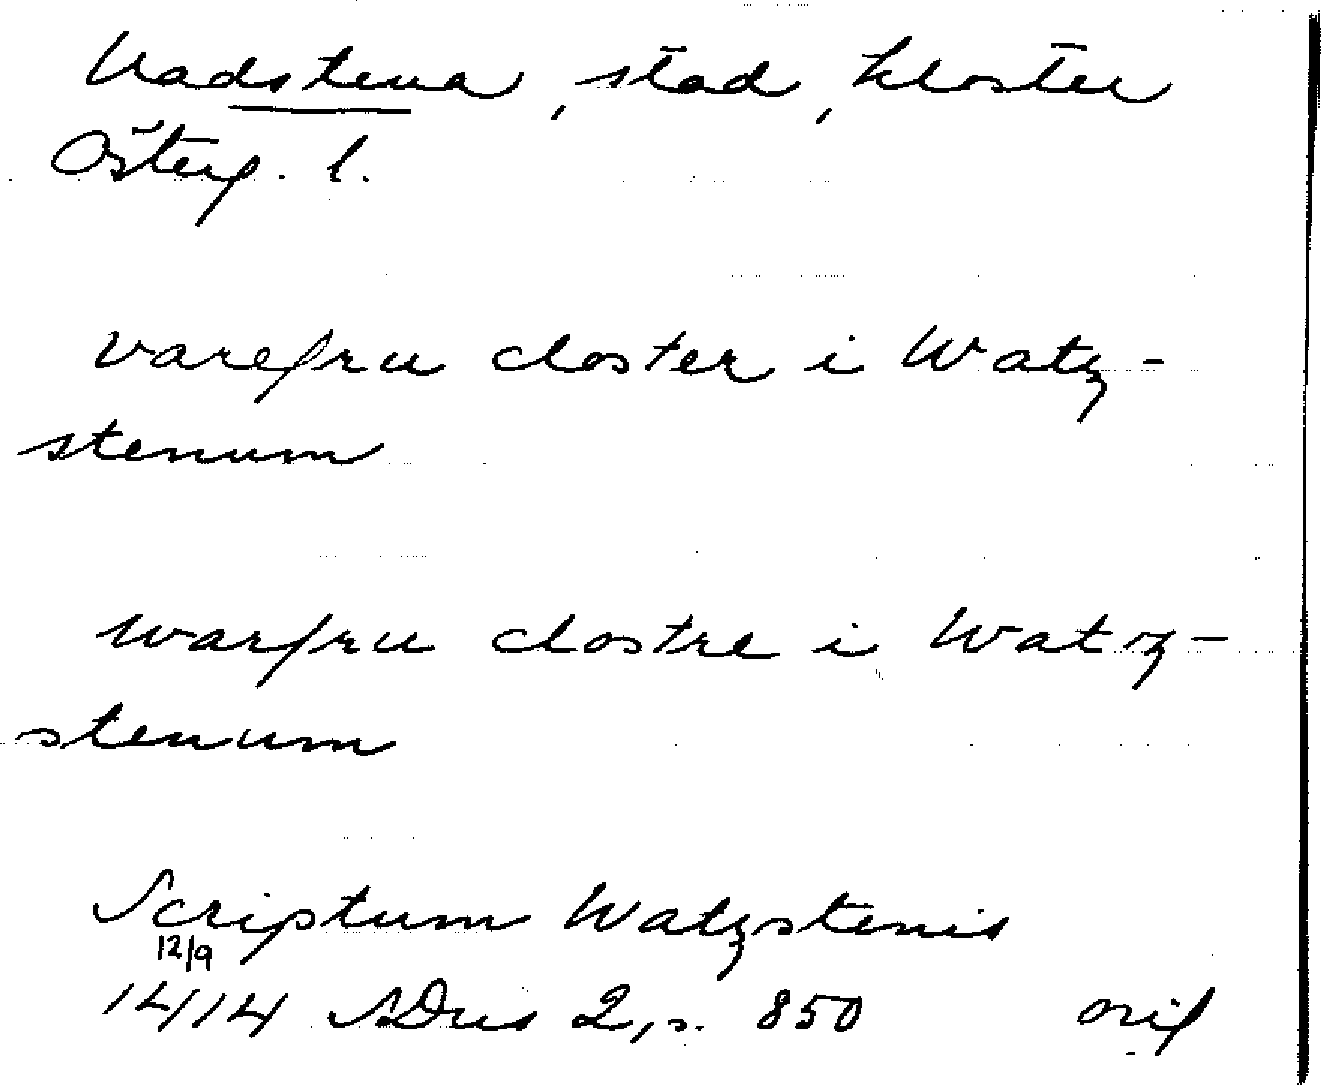 Vadstena, stad, kloster
Österg. l.
varefru closter i Watz-
stenum
warfru clostre i Watz-
stenum
Scriptum Watzstenis
12/9
1414 SDns 2, s. 850 orig